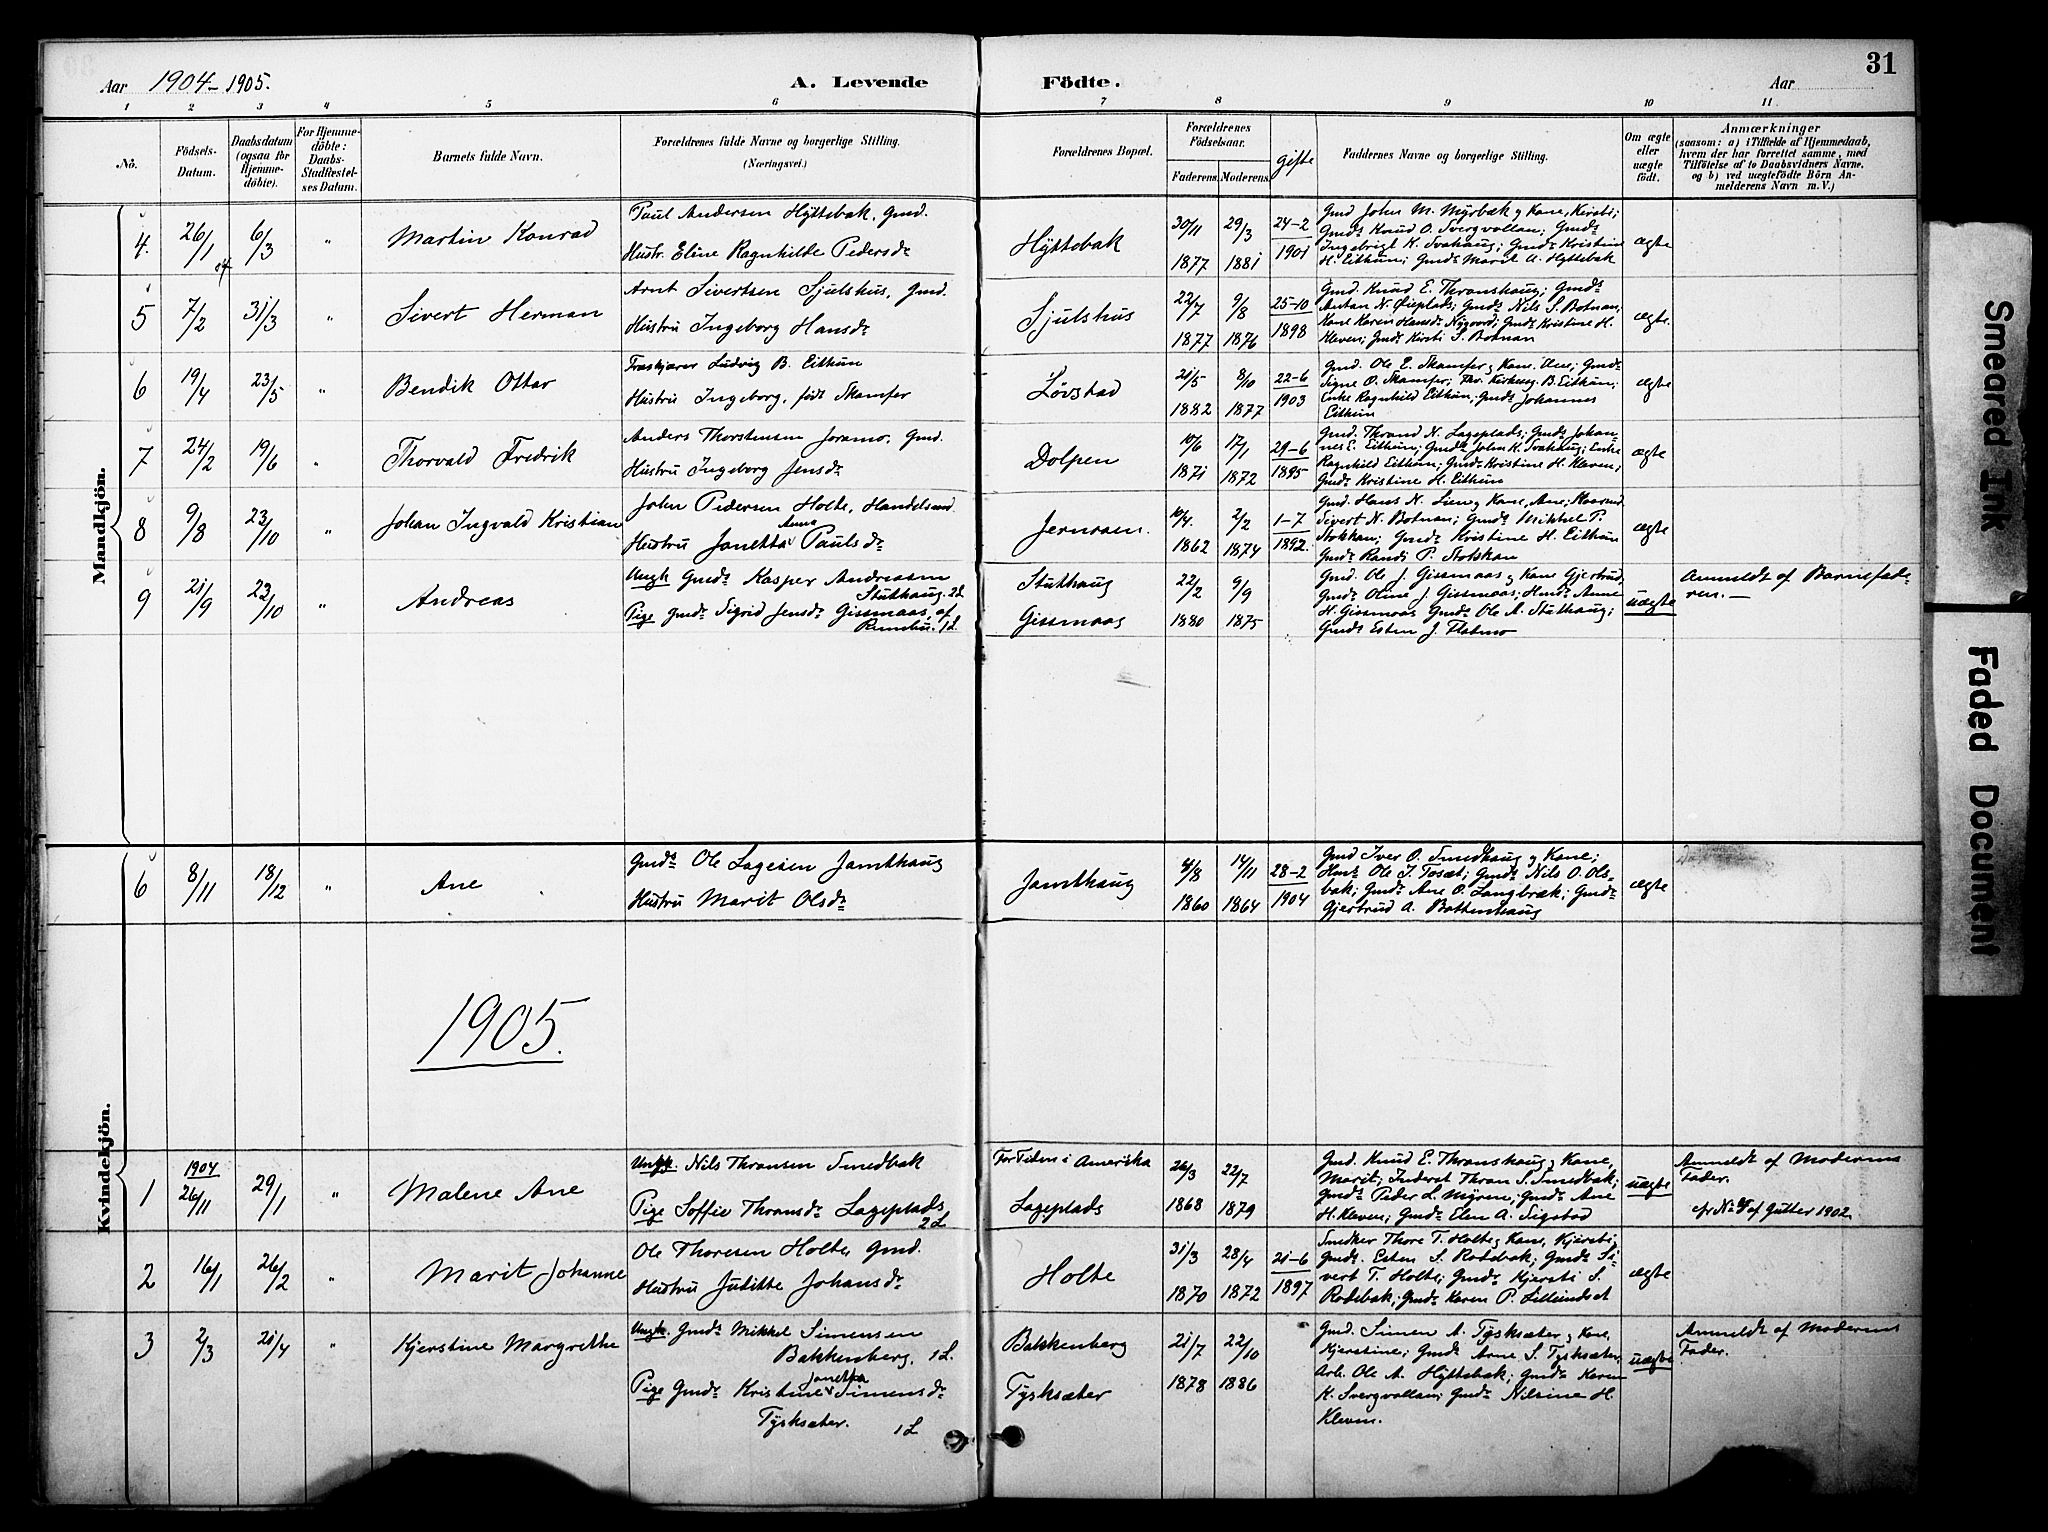 31
Aar 1904-1905.
A. Levende
Födte.
Aar
1 2 3 4 5 6 7 8 9 10 11
No.
Födsels-
Datum.
Daabsdatum
(ogsaa for
Hjemme-
döbte).
For Hjemme-
döbte:
Daabs-
Stadfæstel-
ses Datum.
Barnets fulde Navn.
Forældrenes fulde Navne og borgerlige Stilling.
(Næringsvei.)
Forældrenes Bopæl.
Forældrenes
Födselsaar.
Faderens. Moderens.
gifte
Faddernes Navne og borgerlige Stilling.
Om ægte
eller
uægte
födt.
Anmærkninger
(saasom: a) i Tilfælde af Hjemmedaab,
hvem der har forrettet samme, med
Tilföielse af to Daabsvidners Navne.
og b) ved uægtefödte Börn An-
melderens Navn m. V.)
Mandkjön.
4. 26/1 04 6/3 " Martin Konrad
Paul Andersen Hyttebak, Gmd.
Hustr. Eline Ragnhilde Pedersdr
Hyttebak
30/11 1877 29/3 1881 24-2 1901
Gmd John M. Myrbæk og Kone, Kirsti;
Gmds Knud O. Svergvollan; Gmds
Ingebrigt K. Svahaug; Gmds Kristine
H. Eithun; Gmds Marit A. Hyttebak
ægte
5 7/2 31/3 " Sivert Herman
Arnt Sivertsen Sjulshus, Gmd.
Hustru Ingeborg Hansdr
Sjulshus
22/7 1877 9/8 1876 25-10 1898
Gmd. Knud E. Thranshaug; Gmds
Antan N. Øieplads; Gmds Nils S. Botnan,
Kone Karen Hansdr Nygaard; Gmds Kristine H.
Kleven; Gmds Kirsti S. Botnan
ægte.
6 19/4 23/5 " Bendik Ottar
Træskjærer Ludvig B. Eithun
Hustru Ingeborg, födt Skamfer
Lövstad
21/5 1882 8/10 1877 22-6 1903
Gmd. Ole E. Skamfer og Kone, Elen; Gmds
Signe O. Skamfer; Fhv. Kirkesg. B. Eithun;
Enke Ragnhild Eithun; Gmds Johannes
Eithun
ægte
7 24/2 19/6 " Thorvald Fredrik
Anders Thorstensen Joramo, Gmd.
Hustru Ingeborg Jensdr
Dolpen
10/6 1871 17/1 1872 29-6 1895
Gmd. Thrond N. Lageplads; Gmds Johan-
nes E. Eithun; Gmds John K. Svahaug; Enke
Ragnhild Eithun; Gmds Kristine H. Kleven;
Gmds Kristine H. Eithun
ægte
8 9/8 23/10 " Johan Ingvald Kristian
John Pedersen Holte, Handelsmd
Anna
Hustru Janetta Paulsdr
Jernsaen.
10/4 1862 2/2 1874 1-7 1892.
Gmd. Hans N. Lien og Kone, Ane;
Sivert N. Botnan; Gmds Mikkel P.
Stokkan; Gmds Kristine H. Eithun
Gmds Randi P. Stokkan
ægte
9 21/9 22/10 " Andreas
Ungk Gmds Kasper Andreasen
Stuthaug. 2L
Pige Gmds Sigrid Jensdr Gissmaas, af
Rennbu. 1L.
Stuthaug
Gissmaas
22/2 1880 9/9 1875
Gmd. Ole J. Gissmaas og Kone Gjertrud,
Gmds Oline J. Gissmaas; Hmds Anne
H. Gissmaas Gmds Ole A. Stuthaug;
Gmds Esten J. Flatmo
uægte
Anmeldt af Barnefade-
ren.—
Kvindekjön.
6 8/11 18/12 " Ane
Gmds Ole Lagesen Jamthaug
Hustru Marit Olsdr
Jamthaug
4/8 1860 14/11 1864 28-2 1904
Gmd Iver O. Smedhaug og Kone;
Hmds Ole J. Tosæt; Gmds Nils O. Ols-
bak; Gmds Ane O. Langbræk; Gmds
Gjertrud A. Battenhaug
ægte
1905.
1 1904 26/11 29/1 " Malene Ane
Ungk. Nils Thransen Smedbak
Pige Soffie Thransdr Lageplads,
2 L
For Tiden i Amerika
Lageplads
26/3 1868 22/7 1879
Gmd. Knud E. Thranshaug og Kone,
Marit; Inderst Thran S. Smedbak;
Gmds Peder L. Myren; Gmds Ane
H. Kleven; Gmds Elen A. Sigstad
uægte
Anmeldt af Moderens
Fader.
cfr No 4 af Gutter 1902.
2 16/1 26/2 " Marit Johanne
Ole Thoresen Holte, Gmd.
Hustru Julitte Johansdr
Holte
31/3 1870 28/4 1872 21-6 1897
Smedker Thore T. Holte og Kone, Kjersti;
Gmds. Esten S. Rotebak; Gmds Si-
vert T. Holte; Gmds Kjersti S.
Rotebak; Gmds Karen P. Lilleindset
ægte
3 2/3 21/4 " Kjerstine Margrethe
Ungk. Gmds Mikkel Simensen
Bakkenberg, 1L.
Janetta
Pige Gmds Kristine Simensdr
Tysksæter. 1L
Bakkenberg
Tysksæter
21/7 1878 22/10 1886
Gmd. Simen A. Tysksæter og Kone,
Kjerstine; Gmds Arne S. Tysksæter,
Arb. Ole A. Hyttebak; Gmds Karen
K. Svergvollan; Gmds Nilsine H.
Kleven.
uægte
Anmeldt af Moderens
Fader.
Smeared Ink
Faded Document